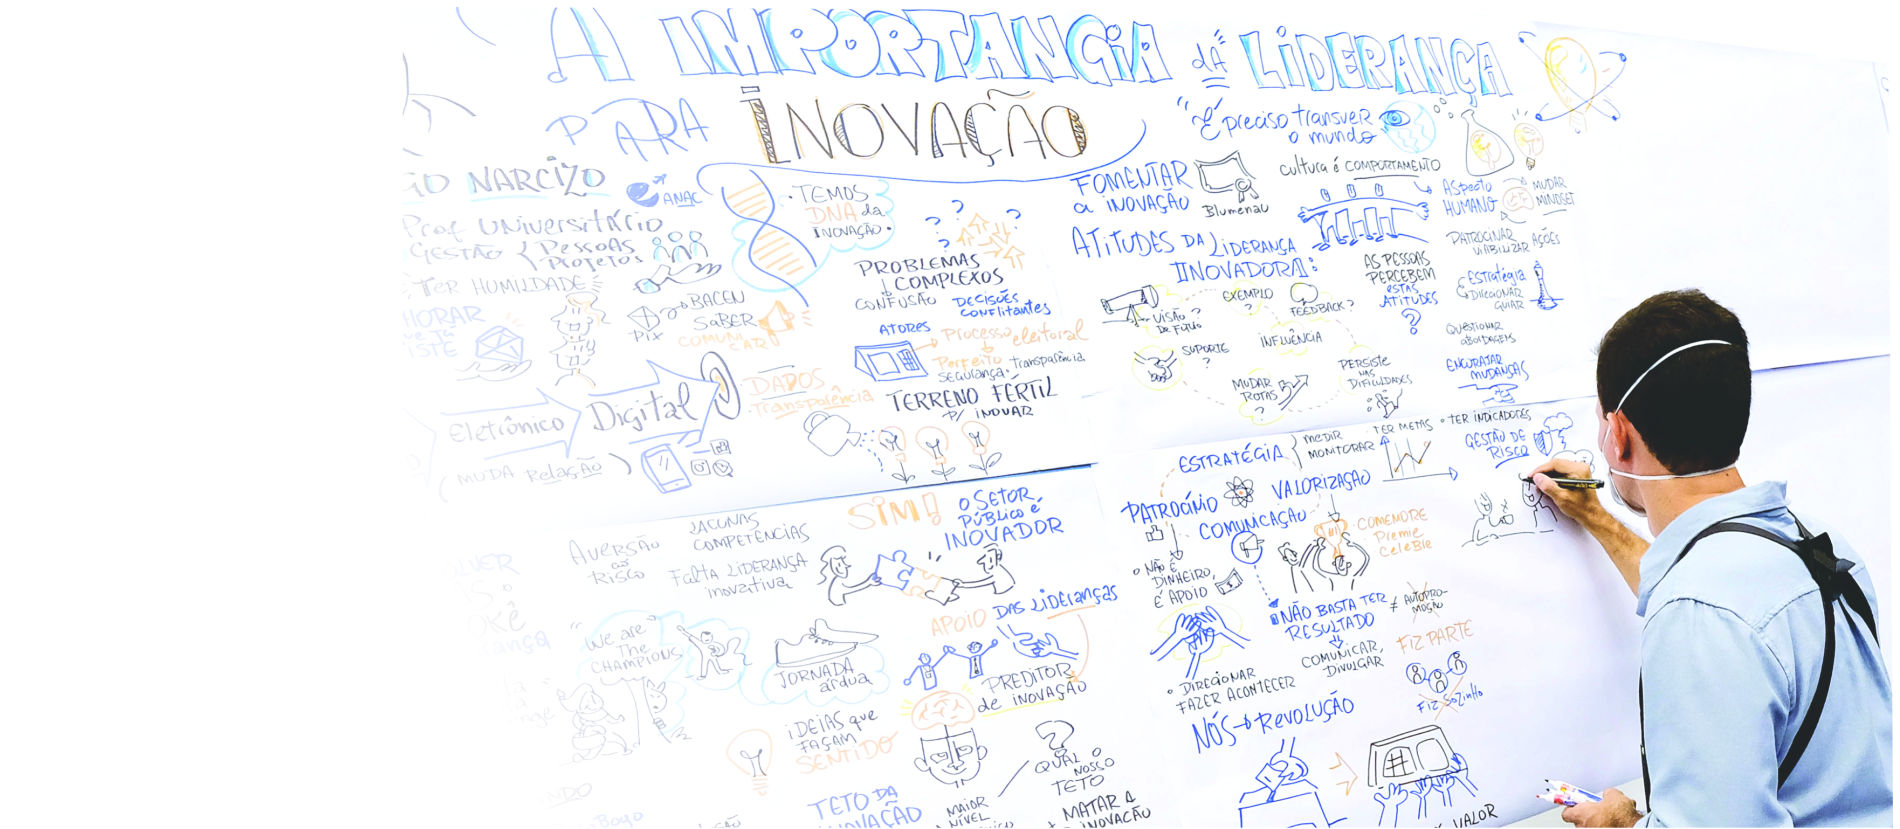 A IMPORTANCIA DA LIDERANÇA
PARA INOVAÇÃO
NARCIZO
ANAC
Prof UNIVERSITÁRIO
GESTÃO { PESSOAS
PROJETOS
TER HUMILDADE
HORAR
BACEN
PIX
SABER
COMUNICAR
Eletrônico
Digital
(MUDA Relação)
• TEMOS
DNA da
INOVAÇÃO •
PROBLEMAS
COMPLEXOS
CONFUSÃO
DECISÕES
CONFLITANTES
ATORES
Processo eleitoral
Perfeito
Transparência
SEGURANÇA •
DADOS
Transparência
TERRENO FÉRTIL
P/ INOVAR
"É preciso transver
o mundo
FOMENTAR
a INOVAÇÃO
Blumenau
cultura é COMPORTAMENTO
ASPecto
HUMANO
MUDAR
MINDSET
PATROCINAR
VIABILIZAR AÇÕES
ATITUDES DA LIDERANÇA
INOVADORA:
VISÃO ?
DE FUTURO
EXEMPLO
?
FEEDBACK?
INFLUÊNCIA
SUPORTE
?
MUDAR
ROTAS
?
PERSISTE
NAS
DIFICULDADES
AS PESSOAS
PERCEBEM
ESTAS
ATITUDES
?
ESTRATÉgia
DIRECIONAR
GUIAR
QUESTIONAR
abordagens
ENCORAJAR
MUDANÇAS
ESTRATÉGIA
MEDIR
MONITORAR
TER METAS
• TER INDICADORES
GESTÃO DE
RISCO
PATROCÍNIO
VALORIZAÇÃO
COMUNICAÇÃO
• NÃO É
DINHEIRO,
É APOIO
COMEMORE
Premie
CeLeBRe
NÃO BASTA TER
RESULTADO
≠ AUTOPRO-
MOÇÃO
COMUNICAR,
DIVULGAR
FIZ PARTE
FIZ SoZinho
• DIRECIONAR
FAZER ACONTECER
NÓS → REVOLUÇÃO
VALOR
SIM!
O SETOR
PÚBLICO É
INOVADOR
AVERSÃO
ao
RISCO
LACUNAS
COMPETÊNCIAS
FALTA LIDERANÇA
inovativa
APOIO DAS LIDERANÇAS
PREDITOR
de INOVAÇÃO
"We are
THE
CHAMPIONS
JORNADA
árdua
iDEIAS que
FAÇAM
SENTIDO
TETO DA
INOVAÇÃO
MAIOR
NÍVEL
QUAL O
NOSSO
TETO
MATAR A
INOVAÇÃO